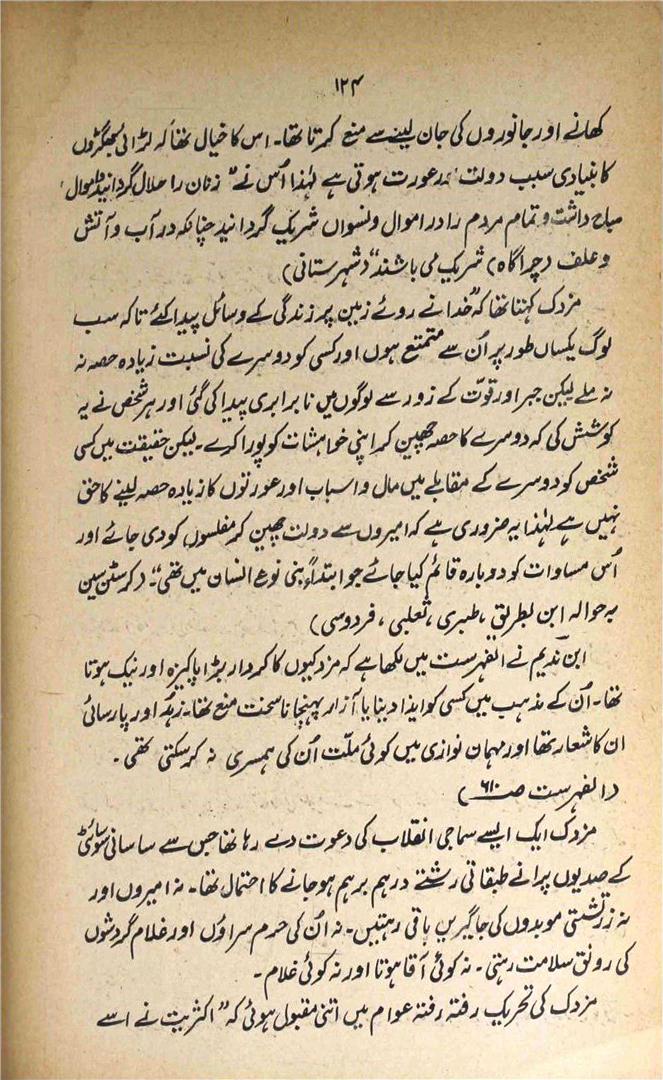 ۱۲۴
کھانے اور جانوروں کی جان لینے سے منع کرتا تھا۔ اس کا خیال تھا کہ لڑائی جھگڑوں
کا بنیادی سبب دولت اور عورت ہوتی ہے لہٰذا اُس نے "زنان را حلال گردانید و اموال
مباح داشت و تمام مردم را در اموال و نسواں شریک گردانید چنانکہ در آب و آتش
و علف (چراگاہ) شریک می باشند" (شہرستانی)
مزدک کہتا تھا کہ "خدا نے روئے زمین پر زندگی کے وسائل پیدا کئے تاکہ سب
لوگ یکساں طور پر اُن سے متمتع ہوں اور کسی کو دوسرے کی نسبت زیادہ حصہ نہ
نہ ملے لیکن جبر اور قوّت کے زور سے لوگوں میں نا برابری پیدا کی گئی اور ہر شخص نے یہ
کوشش کی کہ دوسرے کا حصہ چھین کر اپنی خواہشات کو پورا کرے۔ لیکن حقیقت میں کسی
شخص کو دوسرے کے مقابلے میں مال و اسباب اور عورتوں کا زیادہ حصہ لینے کا حق
نہیں ہے لہٰذا یہ ضروری ہے کہ امیروں سے دولت چھین کر مفلسوں کو دی جائے اور
اُس مساوات کو دوبارہ قائم کیا جائے جو ابتداً بنی نوع انسان میں تھی"۔ (کرسٹن سین
بہ حوالہ ابن بطریق، طبری، ثعلبی، فردوسی)
ابن ندیم نے الفہرست میں لکھا ہے کہ مزدکیوں کا کردار بڑا پاکیزہ اور نیک ہوتا
تھا۔ اُن کے مذہب میں کسی کو ایذا دینا یا آزار پہنچانا سخت منع تھا۔ زہد اور پارسائی
ان کا شعار تھا اور مہمان نوازی میں کوئی ملّت اُن کی ہمسری نہ کر سکتی تھی۔
(الفہرست صـ ۶۱۰)
مزدک ایک ایسے سماجی انقلاب کی دعوت دے رہا تھا جس سے ساسانی سوسائٹی
کے صدیوں پرانے طبقاتی رشتے درہم برہم ہو جانے کا احتمال تھا۔ نہ امیروں اور
نہ زرتشتی موبدوں کی جاگیریں باقی رہتیں۔ نہ اُن کی حرم سراؤں اور غلام گردشوں
کی رونق سلامت رہتی۔ نہ کوئی آقا ہوتا اور نہ کوئی غلام۔
مزدک کی تحریک رفتہ رفتہ عوام میں اتنی مقبول ہوئی کہ "اکثریت نے اسے